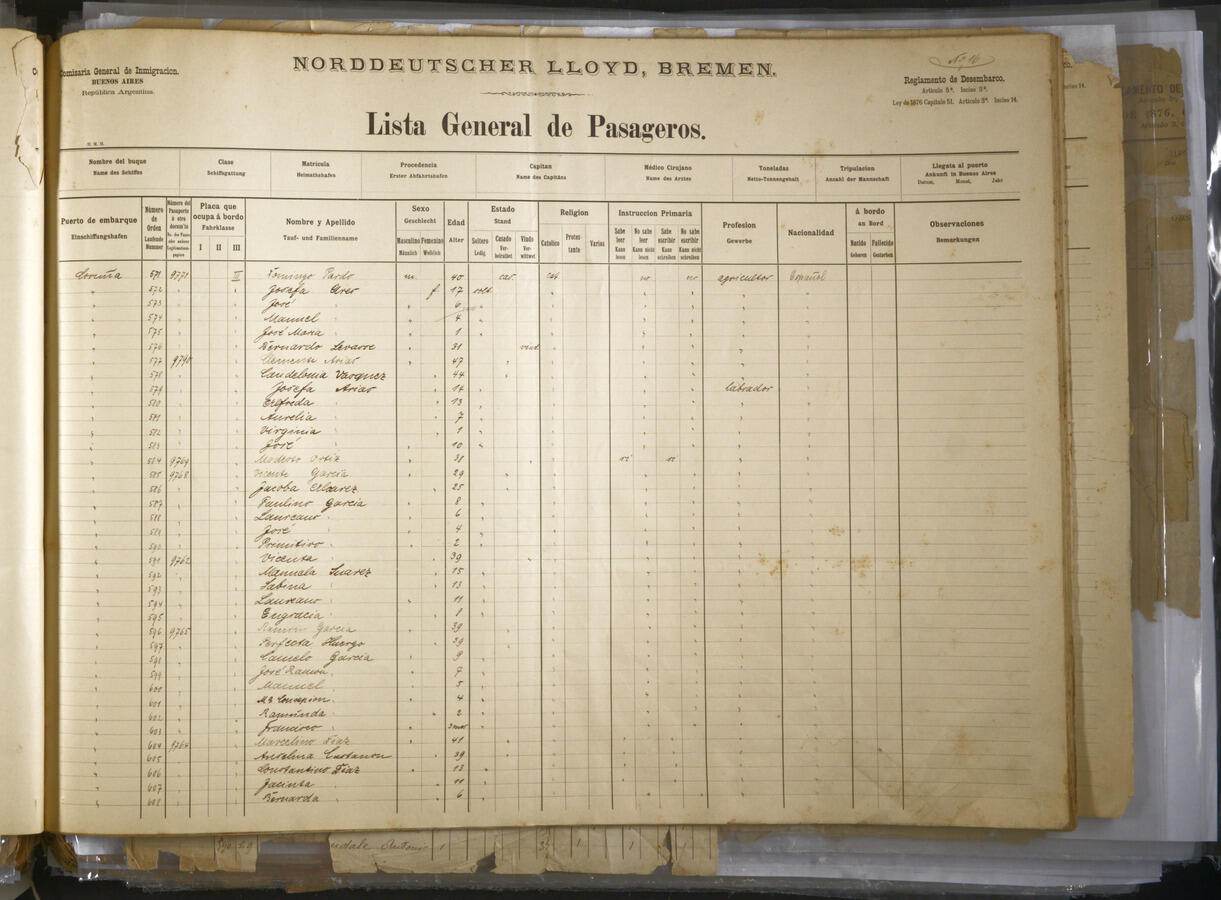 Comisaria General de Inmigracion.
BUENOS AIRES
República Argentina.
NORDDEUTSCHER LLOYD, BREMEN.
Nº 16
Reglamento de Desembarco.
Articulo 5º. Inciso 9º.
Ley de 1876 Capitulo 51. Articulo 3º. Inciso 14.
Lista General de Pasageros.
Nombre del buque
Name des Schiffes
Clase
Schiffsgattung
Matricula
Heimathshafen
Procedencia
Erster Abfahrtshafen
Capitan
Name des Capitäns
Médico Cirujano
Name des Arztes
Toneladas
Netto-Tonnengehalt
Tripulacion
Anzahl der Mannschaft
Llegata al puerto
Ankunft in Buenos Aires
Datum, Monat, Jahr
Puerto de embarque
Einschiffungshafen
Número de Orden
Laufende Nummer
Número del Pasaporte ú otro
Placa que ocupa á bordo
Fahrklasse
I II III
Nombre y Apellido
Tauf- und Familienname
Sexo
Geschlecht
Masculino Femenino
Männlich Weiblich
Edad
Alter
Estado
Stand
Soltero Ledig
Casado Verheirathet
Vindo Verwittwet
Religion
Catolico
Protestante
Varios
Instruccion Primaria
Sabe leer Kann lesen
No sabe leer Kann nicht lesen
Sabe escribir Kann schreiben
No sabe escribir Kann nicht schreiben
Profesion
Gewerbe
Nacionalidad
á bordo
an Bord
Nacido Geboren
Fallecido Gestorben
Observaciones
Bemerkungen
Coruña 571 9771 III Domingo Pardo m. 40 cas. cat no no agricultor Español
572 " Josefa Ares f 17 solt
573 " José " 6
574 " Manuel " 4
575 " José Maria " 1
576 " Bernardo 31 viud
577 9790 Clemente Arias 47
578 " Vazquez 44
579 " Josefa Arias 14 labrador
580 " 13
581 " Aurelia " 7
582 " Virginia " 1
583 " José " 10
584 9769 Modesto Ortiz 38 si si
585 9768 Vicente Garcia 29
586 " Jacoba Alvarez 25
587 " Paulino Garcia 8
588 " Laureano " 6
589 " José " 4
590 " Primitivo " 2
591 9762 Vicenta " 39
592 " Manuela Suarez 15
593 " Sabina " 13
594 " Laureano " 11
595 " Engracia " 8
596 9765 Ramon Garcia 39
597 " Perfecta Huergo 39
598 " Camelo Garcia 9
599 " José Ramon " 7
600 " Manuel " 5
601 " Mª Concepcion " 4
602 " Ramunda " 2
603 " Francisco "
604 9764 Marcelino Diaz 41
605 " Anselma Castanon 39
606 " Constantino Diaz 13
607 " Jacinta " 11
608 " Bernarda " 6
Antonio 1